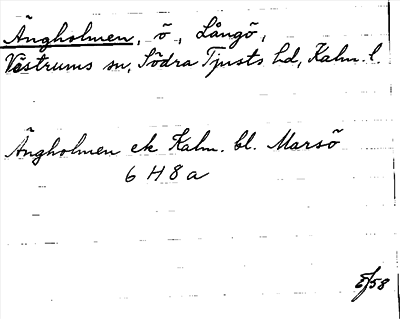 Ängholmen, ö, Långö,
Västrums sn, Södra Tjusts hd, Kalm. l.
Ängholmen ek Kalm. bl. Marsö
6 H 8 a
/58